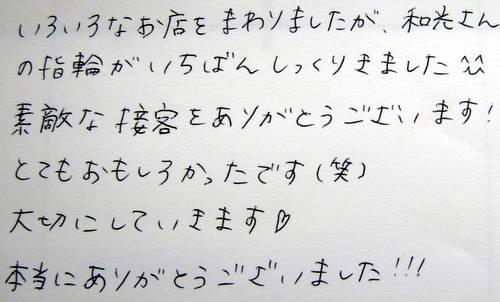 いろいろなお店をまわりましたが、和光さん
の指輪がいちばんしっくりきました^^
素敵な接客をありがとうございます!
とてもおもしろかったです(笑)
大切にしていきます♡
本当にありがとうございました!!!